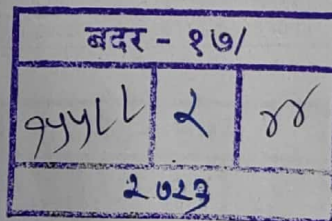 बदर - १७/
१५५८८ २ ४४
२०२३